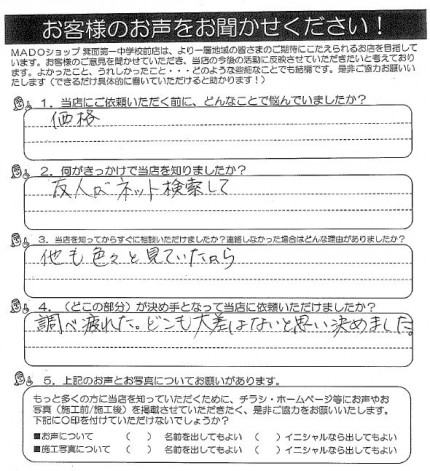 お客様のお声をお聞かせください！
MADOショップ 箕面第一中学校前店は、より一層地域の皆さまのご期待にこたえられるお店を目指して
います。お客様のご意見を聞かせていただき、当店の今後の活動に反映させていただきたいと考えており
ます。よかったこと、うれしかったこと・・・どのような些細なことでも結構です。是非ご協力お願いい
たします（できるだけ具体的に書いていただけると助かります！）
1．当店にご依頼いただく前に、どんなことで悩んでいましたか？
価格
2．何がきっかけで当店を知りましたか？
友人がネット検索して
3．当店を知ってからすぐに相談いただけましたか？連絡しなかった場合はどんな理由がありましたか？
他も色々と見ていたから
4．（どこの部分）が決め手となって当店に依頼いただけましたか？
調べ疲れた。どこも大差はないと思い決めました。
5．上記のお声とお写真についてお願いがあります。
もっと多くの方に当店を知っていただくために、チラシ・ホームページ等にお声やお
写真（施工前/施工後）を掲載させていただきたく、是非ご協力をお願いいたします。
下記に〇印を付けていただけないでしょうか？
■お声について （　）名前を出してもよい （　）イニシャルなら出してもよい
■施工写真について （　）名前を出してもよい （　）イニシャルなら出してもよい